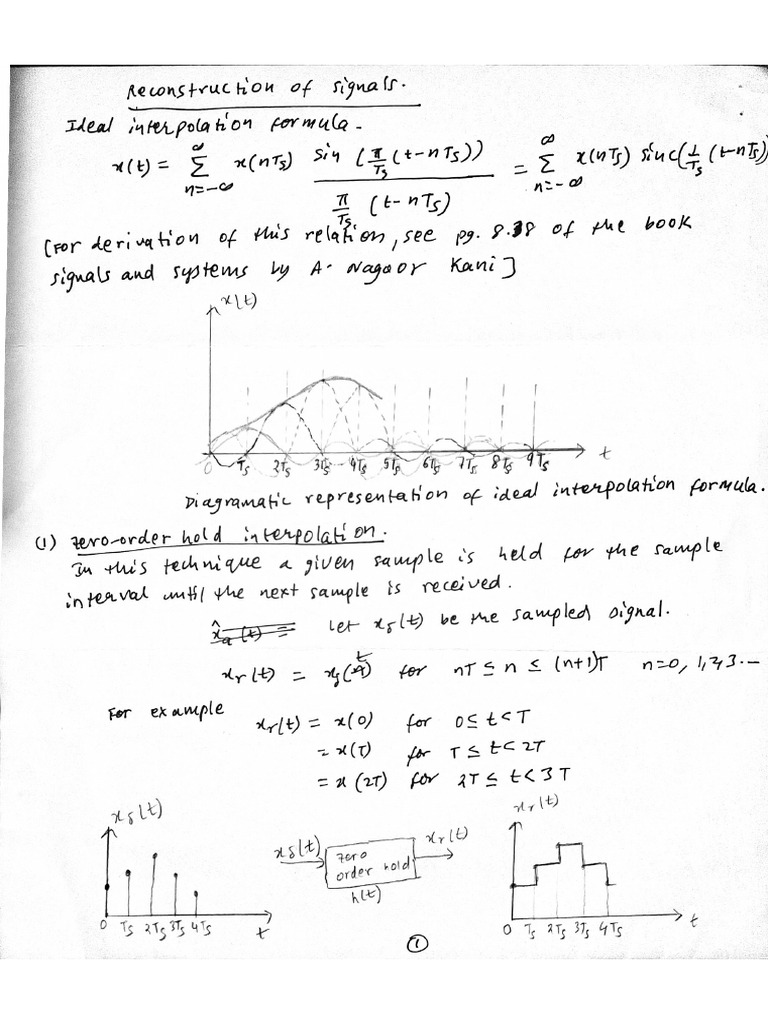 Reconstruction of signals.
Ideal interpolation formula.
x(t) = ∑_{n=-∞}^{∞} x(nTs) sin(π/Ts (t-nTs)) / (π/Ts (t-nTs)) = ∑_{n=-∞}^{∞} x(nTs) sinc(1/Ts (t-nTs))
[For derivation of this relation, see pg. 8.38 of the book
signals and systems by A. Nagoor Kani]
x(t)
0 Ts 2Ts 3Ts... 4Ts 5Ts 6Ts 7Ts 8Ts 9Ts t
Diagramatic representation of ideal interpolation formula.
(1) zero-order hold interpolation.
In this technique a given sample is held for the sample
interval until the next sample is received.
Let xδ(t) be the sampled signal.
xr(t) = xδ(t) for nT ≤ n ≤ (n+1)T n=0, 1, 2, 3...
For example xr(t) = x(0) for 0 ≤ t < T
= x(T) for T ≤ t < 2T
= x(2T) for 2T ≤ t < 3T
xδ(t)
0 Ts 2Ts 3Ts 4Ts t
xδ(t) zero order hold xr(t)
h(t)
xr(t)
0 Ts 2Ts 3Ts 4Ts t
1